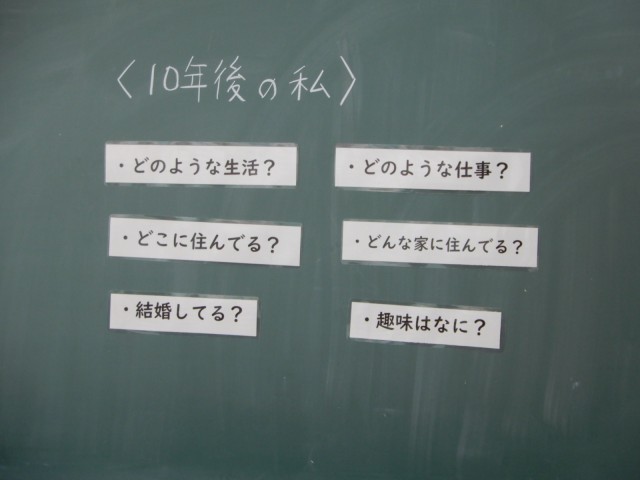 〈10年後の私〉
・どのような生活？
・どのような仕事？
・どこに住んでる？
・どんな家に住んでる？
・結婚してる？
・趣味はなに？